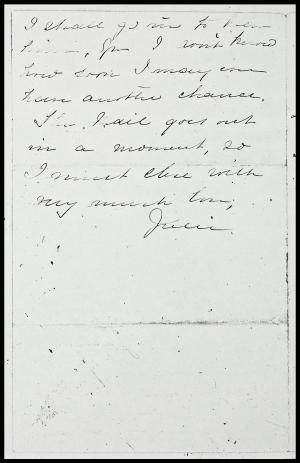 I shall go in to hear
him, for I don't know
how soon I may
have another chance.
The Mail goes out
in a moment, so
I must close with
very much love,
Julie.